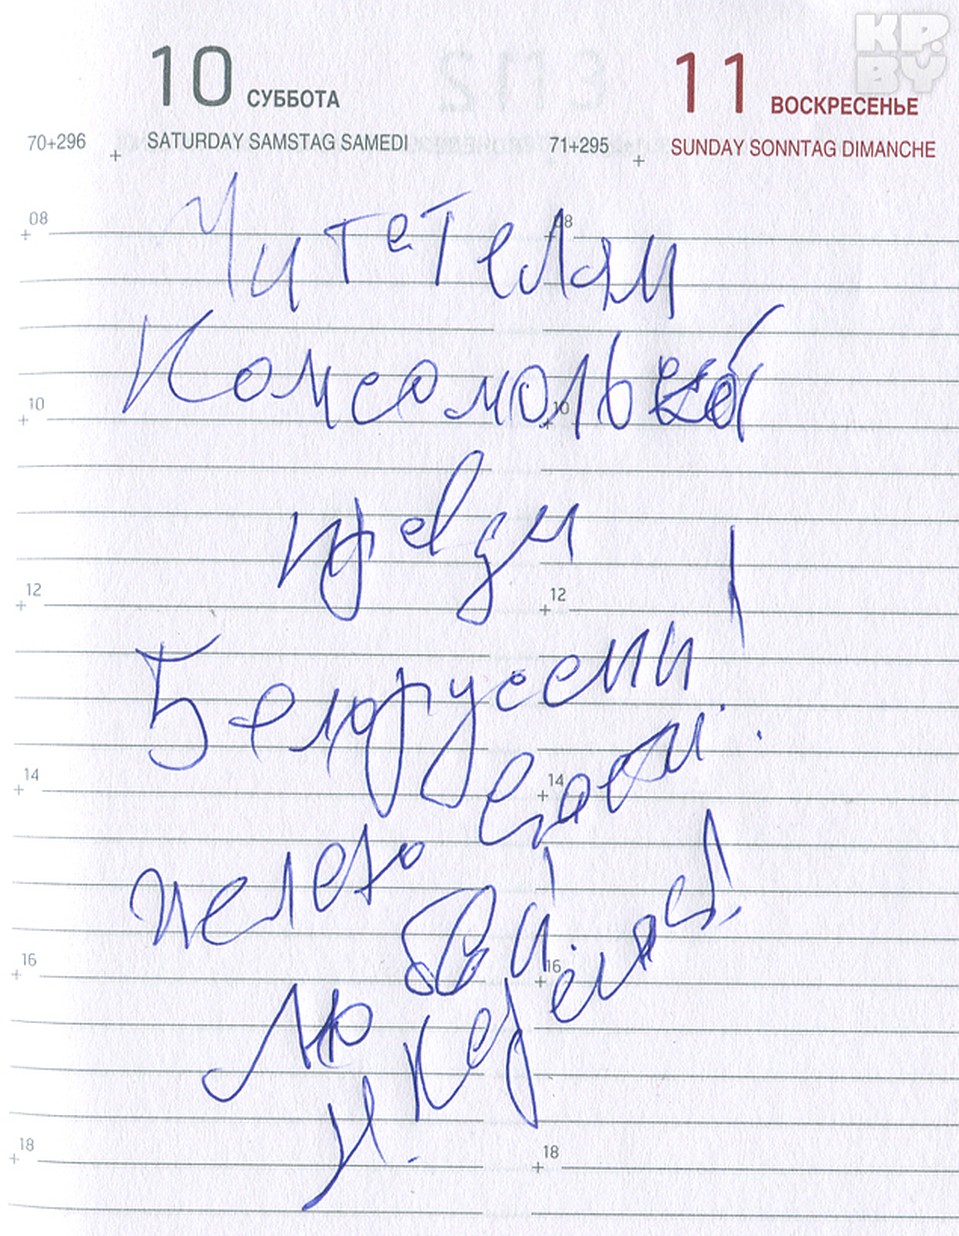 10 СУББОТА
SATURDAY SAMSTAG SAMEDI
70+296
11 ВОСКРЕСЕНЬЕ
SUNDAY SONNTAG DIMANCHE
71+295
KP.BY
08 08
Читателям
Комсомольской
10 10
правды
12 12
Белоруссии!
14 14
желаю
любви!
16 16
И.
18 18